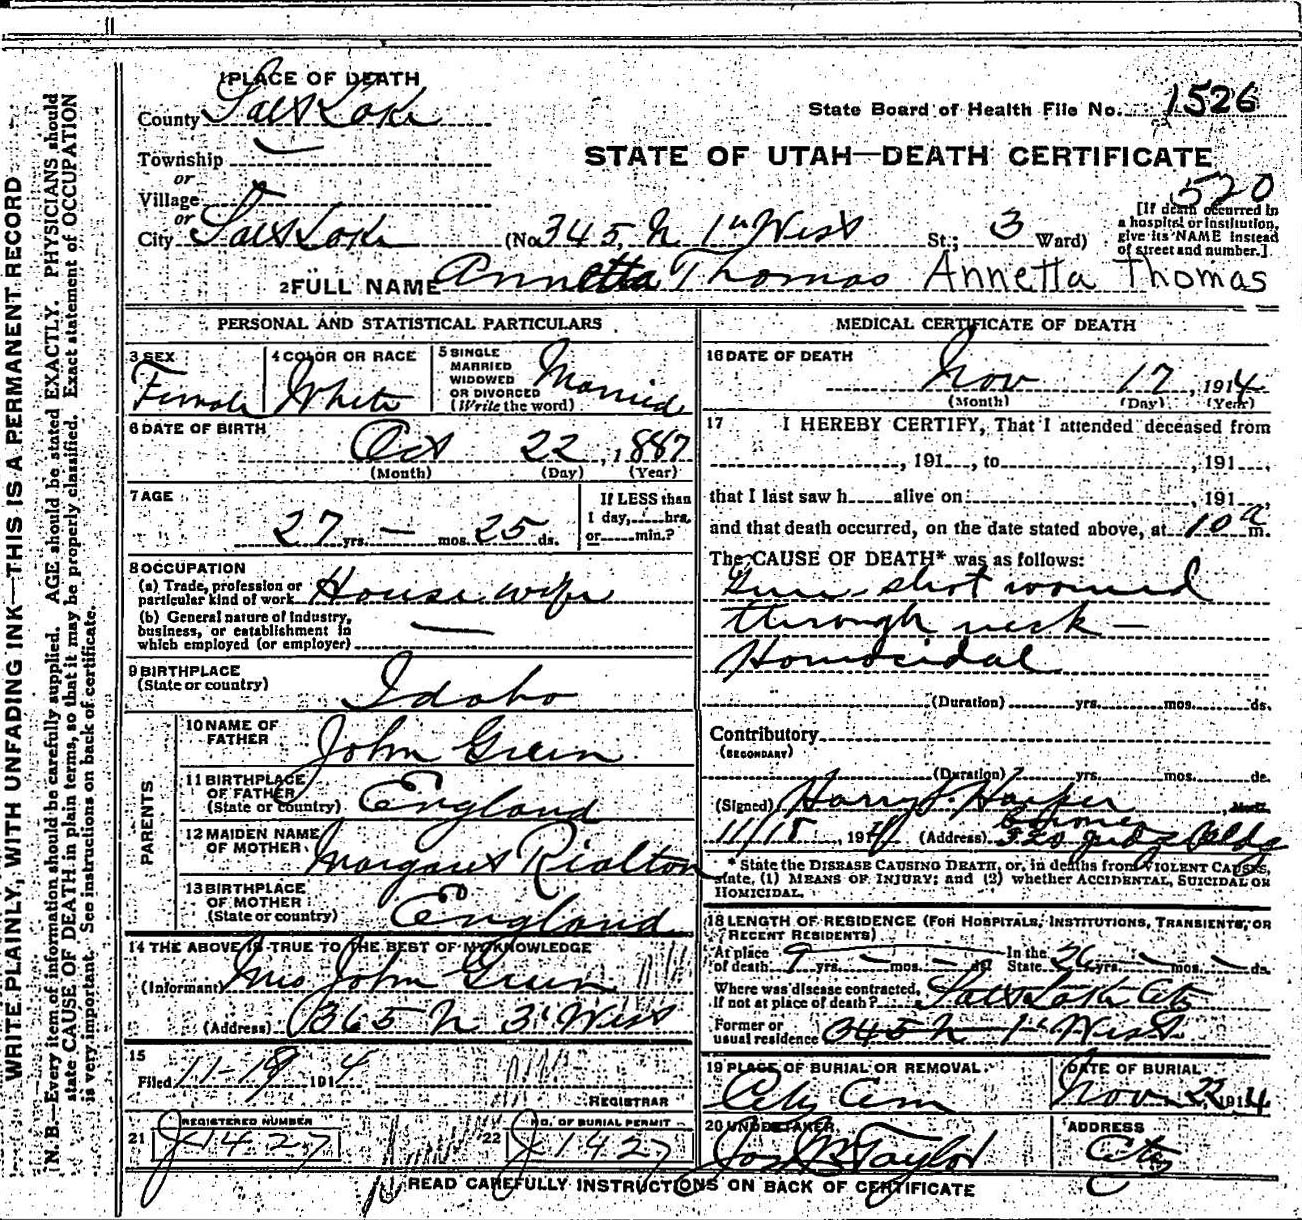 WRITE PLAINLY, WITH UNFADING INK—THIS IS A PERMANENT RECORD
N. B.—Every item of information should be carefully supplied. AGE should be stated EXACTLY. PHYSICIANS should
state CAUSE OF DEATH in plain terms, so that it may be properly classified. Exact statement of OCCUPATION
is very important. See instructions on back of certificate.
1 PLACE OF DEATH
County Salt Lake
State Board of Health File No. 1526
Township
or
STATE OF UTAH—DEATH CERTIFICATE
520
Village
or
City Salt Lake (No. 345 N 1st West St.; 3 Ward)
[If death occurred in
a hospital or institution,
give its NAME instead
of street and number.]
2 FULL NAME Annetta Thomas Annetta Thomas
PERSONAL AND STATISTICAL PARTICULARS
3 SEX Female
4 COLOR OR RACE White
5 SINGLE
MARRIED
WIDOWED
OR DIVORCED
(Write the word) Married
6 DATE OF BIRTH
Oct 22, 1887
(Month) (Day) (Year)
7 AGE
27 yrs. — mos. 25 ds.
If LESS than
1 day, hrs.
or min.?
8 OCCUPATION
(a) Trade, profession or
particular kind of work House wife
(b) General nature of industry,
business, or establishment in
which employed (or employer) —
9 BIRTHPLACE
(State or country) Idaho
PARENTS
10 NAME OF
FATHER John Green
11 BIRTHPLACE
OF FATHER
(State or country) England
12 MAIDEN NAME
OF MOTHER Margaret Rialton
13 BIRTHPLACE
OF MOTHER
(State or country) England
14 THE ABOVE IS TRUE TO THE BEST OF MY KNOWLEDGE
(Informant) Mrs John Green
(Address) 365 N 3d West
15
Filed 11-19 1914
REGISTRAR
REGISTERED NUMBER
21 J-1427
NO. OF BURIAL PERMIT
22 J 1427
MEDICAL CERTIFICATE OF DEATH
16 DATE OF DEATH
Nov 17, 1914
(Month) (Day) (Year)
17 I HEREBY CERTIFY, That I attended deceased from
, 191 , to , 191 ,
that I last saw h alive on , 191 ,
and that death occurred, on the date stated above, at 10 a m.
The CAUSE OF DEATH* was as follows:
Gun-shot wound
through neck —
Homocidal
(Duration) yrs. mos. ds.
Contributory
(SECONDARY)
(Duration) yrs. mos. ds.
(Signed) Harry Harper
Coroner
11/18, 1914 (Address) Judge Bldg
* State the DISEASE CAUSING DEATH, or, in deaths from VIOLENT CAUSES,
state, (1) MEANS OF INJURY; and (2) whether ACCIDENTAL, SUICIDAL OR
HOMICIDAL.
18 LENGTH OF RESIDENCE (FOR HOSPITALS, INSTITUTIONS, TRANSIENTS, OR
RECENT RESIDENTS)
At place
of death 9 yrs. — mos. — ds. In the
State 26 yrs. — mos. — ds.
Where was disease contracted,
If not at place of death? Salt Lake City
Former or
usual residence 345 N 1st West
19 PLACE OF BURIAL OR REMOVAL
City Cem
DATE OF BURIAL
Nov. 22 1914
20 UNDERTAKER
Jos Taylor
ADDRESS
City
READ CAREFULLY INSTRUCTIONS ON BACK OF CERTIFICATE